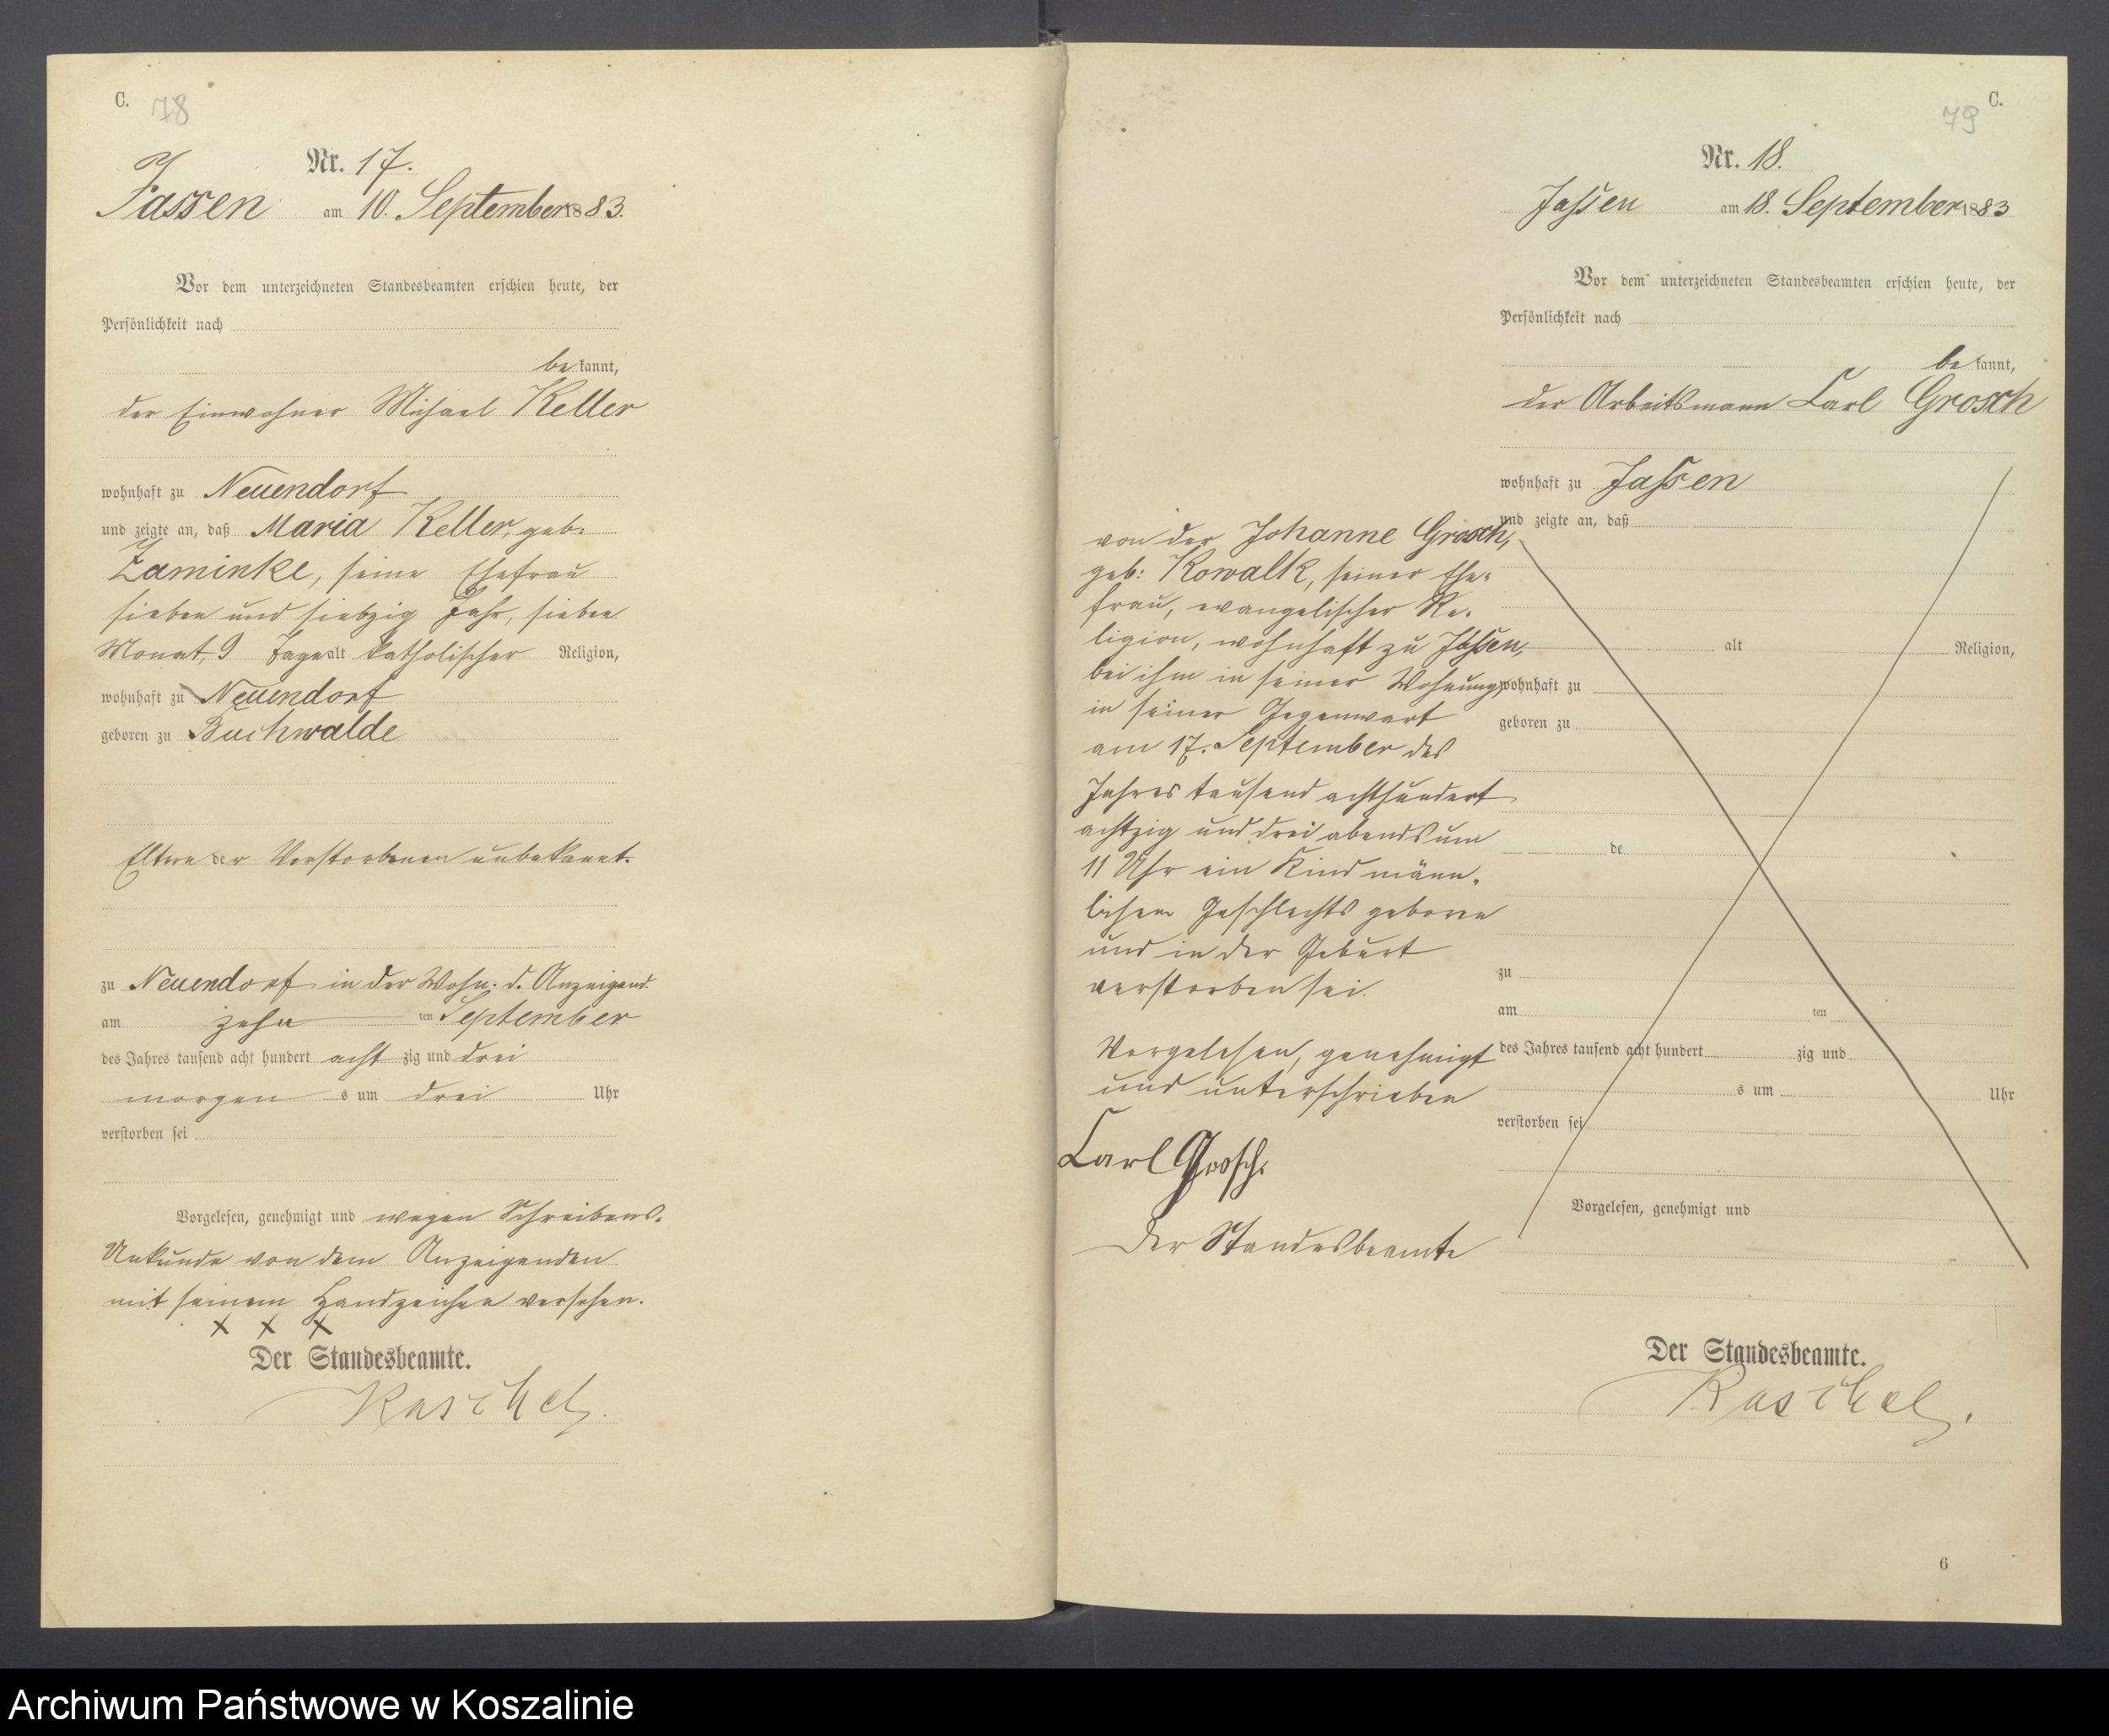 C.
78
Nr. 17.
Jassen am 10. September 1883.
Vor dem unterzeichneten Standesbeamten erschien heute, der
Persönlichkeit nach
be kannt,
der Einwohner Michael Keller
wohnhaft zu Neuendorf
und zeigte an, daß Maria Keller, geb:
Zaminke, seine Ehefrau
sieben und siebzig Jahr, sieben
Monat, 9 Tage alt katholischer Religion,
wohnhaft zu Neuendorf
geboren zu Buchwalde
Eltern der Verstorbenen unbekannt.
zu Neuendorf in der Wohn. d. Anzeigend.
am zehn ten September
des Jahres tausend acht hundert acht zig und drei
morgen s um drei Uhr
verstorben sei
Vorgelesen, genehmigt und wegen Schreibens-
Unkunde von dem Anzeigenden
mit seinem Handzeichen versehen.
x x x
Der Standesbeamte.
Raschel.
C.
79
Nr. 18.
Jassen am 18. September 1883
Vor dem unterzeichneten Standesbeamten erschien heute, der
Persönlichkeit nach
be kannt,
der Arbeitsmann Carl Grosch
wohnhaft zu Jassen
und zeigte an, daß
von der Johanne Grosch,
geb: Kowalk, seiner Ehe-
frau, evangelischer Re-
ligion, wohnhaft zu Jassen,
bei ihm in seiner Wohnung
in seiner Gegenwart
am 17. September des
Jahres tausend achthundert
achtzig und drei abends um
11 Uhr ein Kind männ-
lichen Geschlechts geboren
und in der Geburt
verstorben sei.
Vorgelesen, genehmigt
und unterschrieben
Carl Grosch.
Der Standesbeamte
alt Religion,
wohnhaft zu
geboren zu
de
zu
am ten
des Jahres tausend acht hundert zig und
s um Uhr
verstorben sei
Vorgelesen, genehmigt und
Der Standesbeamte.
Raschel.
6
Archiwum Państwowe w Koszalinie